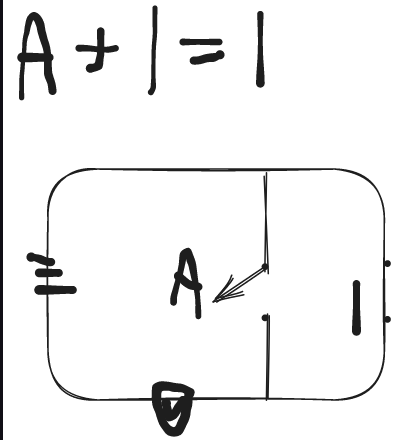 A + 1 = 1
A
1